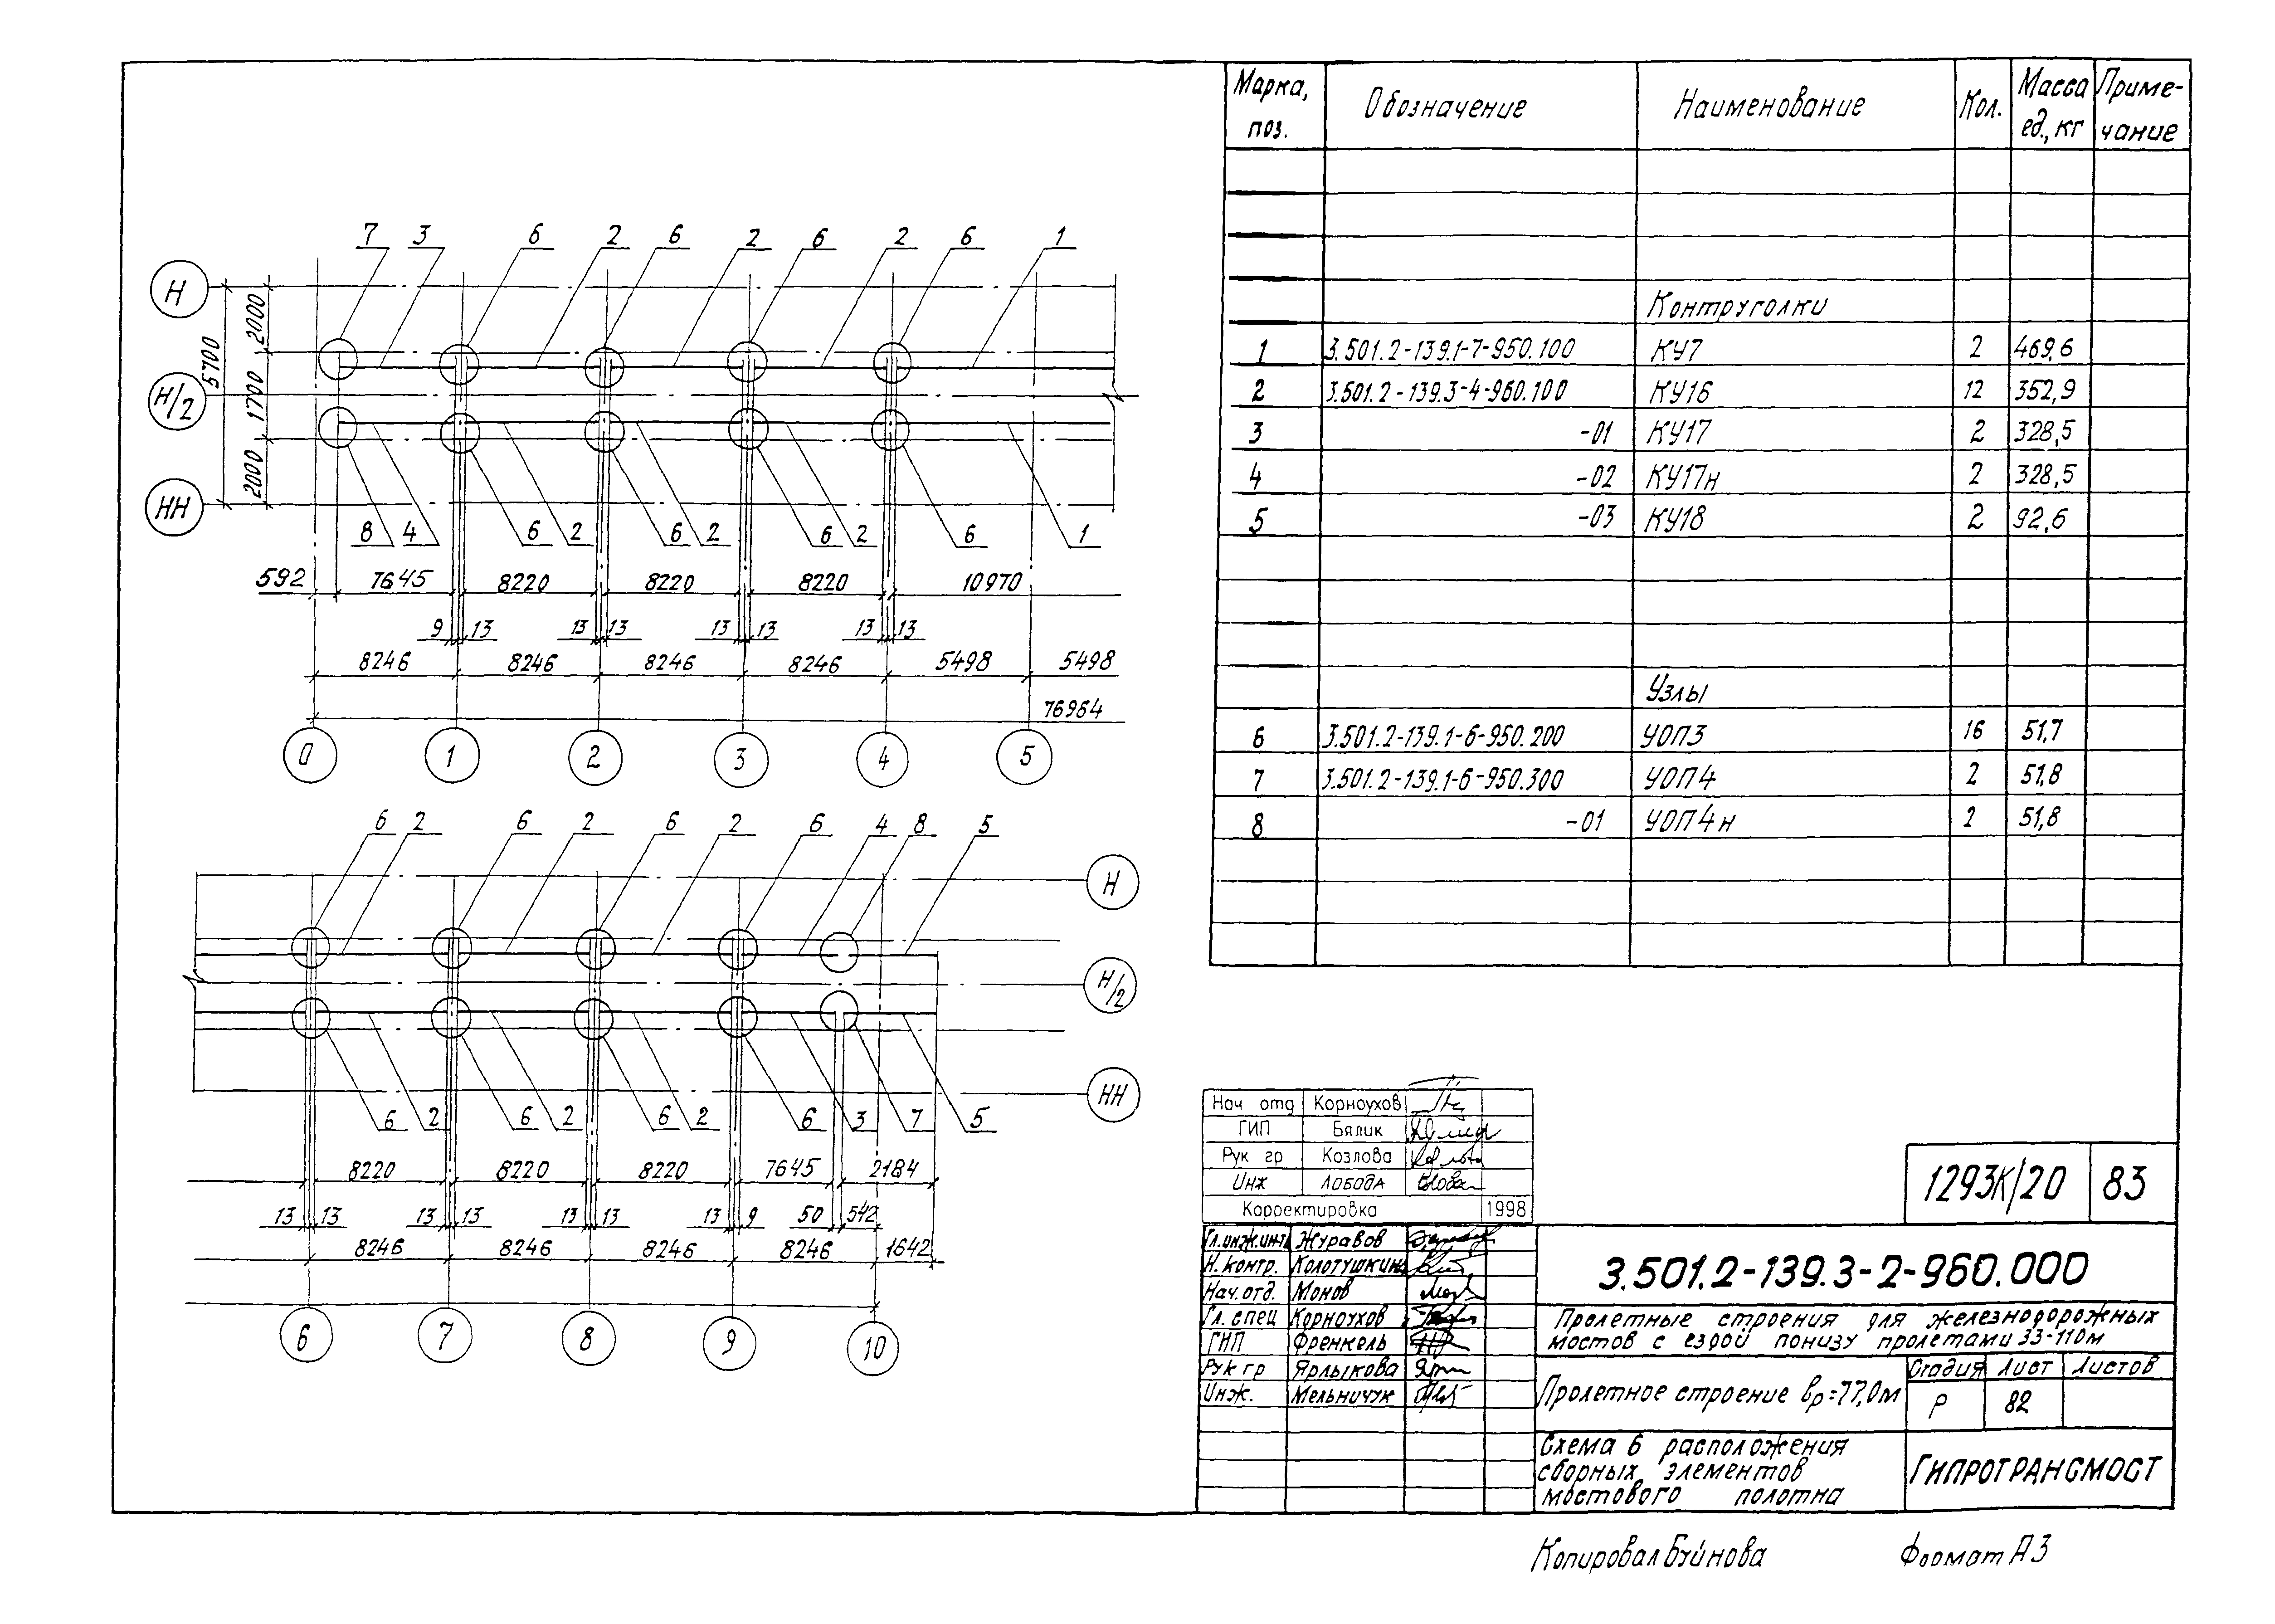 7 3 6 2 6 2 6 2 6 1
Н
Н/2
НН
5700
2000
1700
2000
8 4 6 2 6 2 6 2 6 1
592 7645 8220 8220 8220 10970
9 13 13 13 13 13 13 13
8246 8246 8246 8246 5498 5498
76964
0 1 2 3 4 5
6 2 6 2 6 2 6 4 8 5
Н
Н/2
НН
6 2 6 2 6 2 6 3 7 5
8220 8220 8220 7645 2184
13 13 13 13 13 13 13 9 50 542
8246 8246 8246 8246 1642
6 7 8 9 10
Марка, поз. Обозначение Наименование Кол. Масса ед., кг Приме-чание
Контруголки
1 3.501.2-139.1-7-950.100 КУ7 2 469,6
2 3.501.2-139.3-4-960.100 КУ16 12 352,9
3 -01 КУ17 2 328,5
4 -02 КУ17н 2 328,5
5 -03 КУ18 2 92,6
Узлы
6 3.501.2-139.1-6-950.200 УОП3 16 51,7
7 3.501.2-139.1-6-950.300 УОП4 2 51,8
8 -01 УОП4н 2 51,8
Нач отд Корноухов
ГИП Бялик
Рук гр Козлова
Инж Лобода
Корректировка 1998
1293К/20 83
Гл.инж.инт. Журавов
Н. контр. Колотушкин
Нач. отд. Монов
Гл. спец Корноухов
ГИП Френкель
Рук гр Ярлыкова
Инж. Мельничук
3.501.2-139.3-2-960.000
Пролетные строения для железнодорожных
мостов с ездой понизу пролетами 33-110м
Пролетное строение ℓр=77,0м
Стадия Лист Листов
Р 82
Схема 6 расположения
сборных элементов
мостового полотна
ГИПРОТРАНСМОСТ
Копировал Буйнова Формат А3